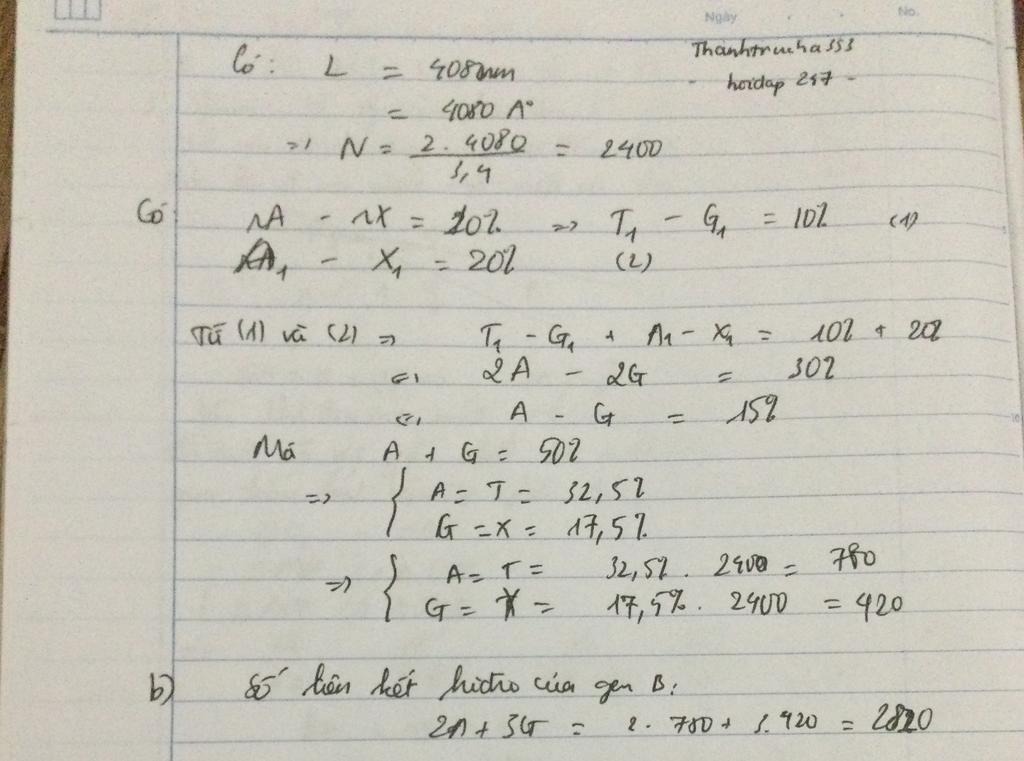 Ngày . . No.
Thanhtrucha353
- hoidap 247 -
Có: L = 408nm
= 4080 A°
=> N = 2.4080 / 3,4 = 2400
Có: rA - rX = 10% => T₁ - G₁ = 10% (1)
A₁ - X₁ = 20% (2)
Từ (1) và (2) => T₁ - G₁ + A₁ - X₁ = 10% + 20%
<=> 2A - 2G = 30%
<=> A - G = 15%
Mà A + G = 50%
=> { A = T = 32,5%
G = X = 17,5%
=> { A = T = 32,5% . 2400 = 780
G = X = 17,5% . 2400 = 420
b) Số liên kết hidro của gen B:
2A + 3G = 2. 780 + 3. 420 = 2820